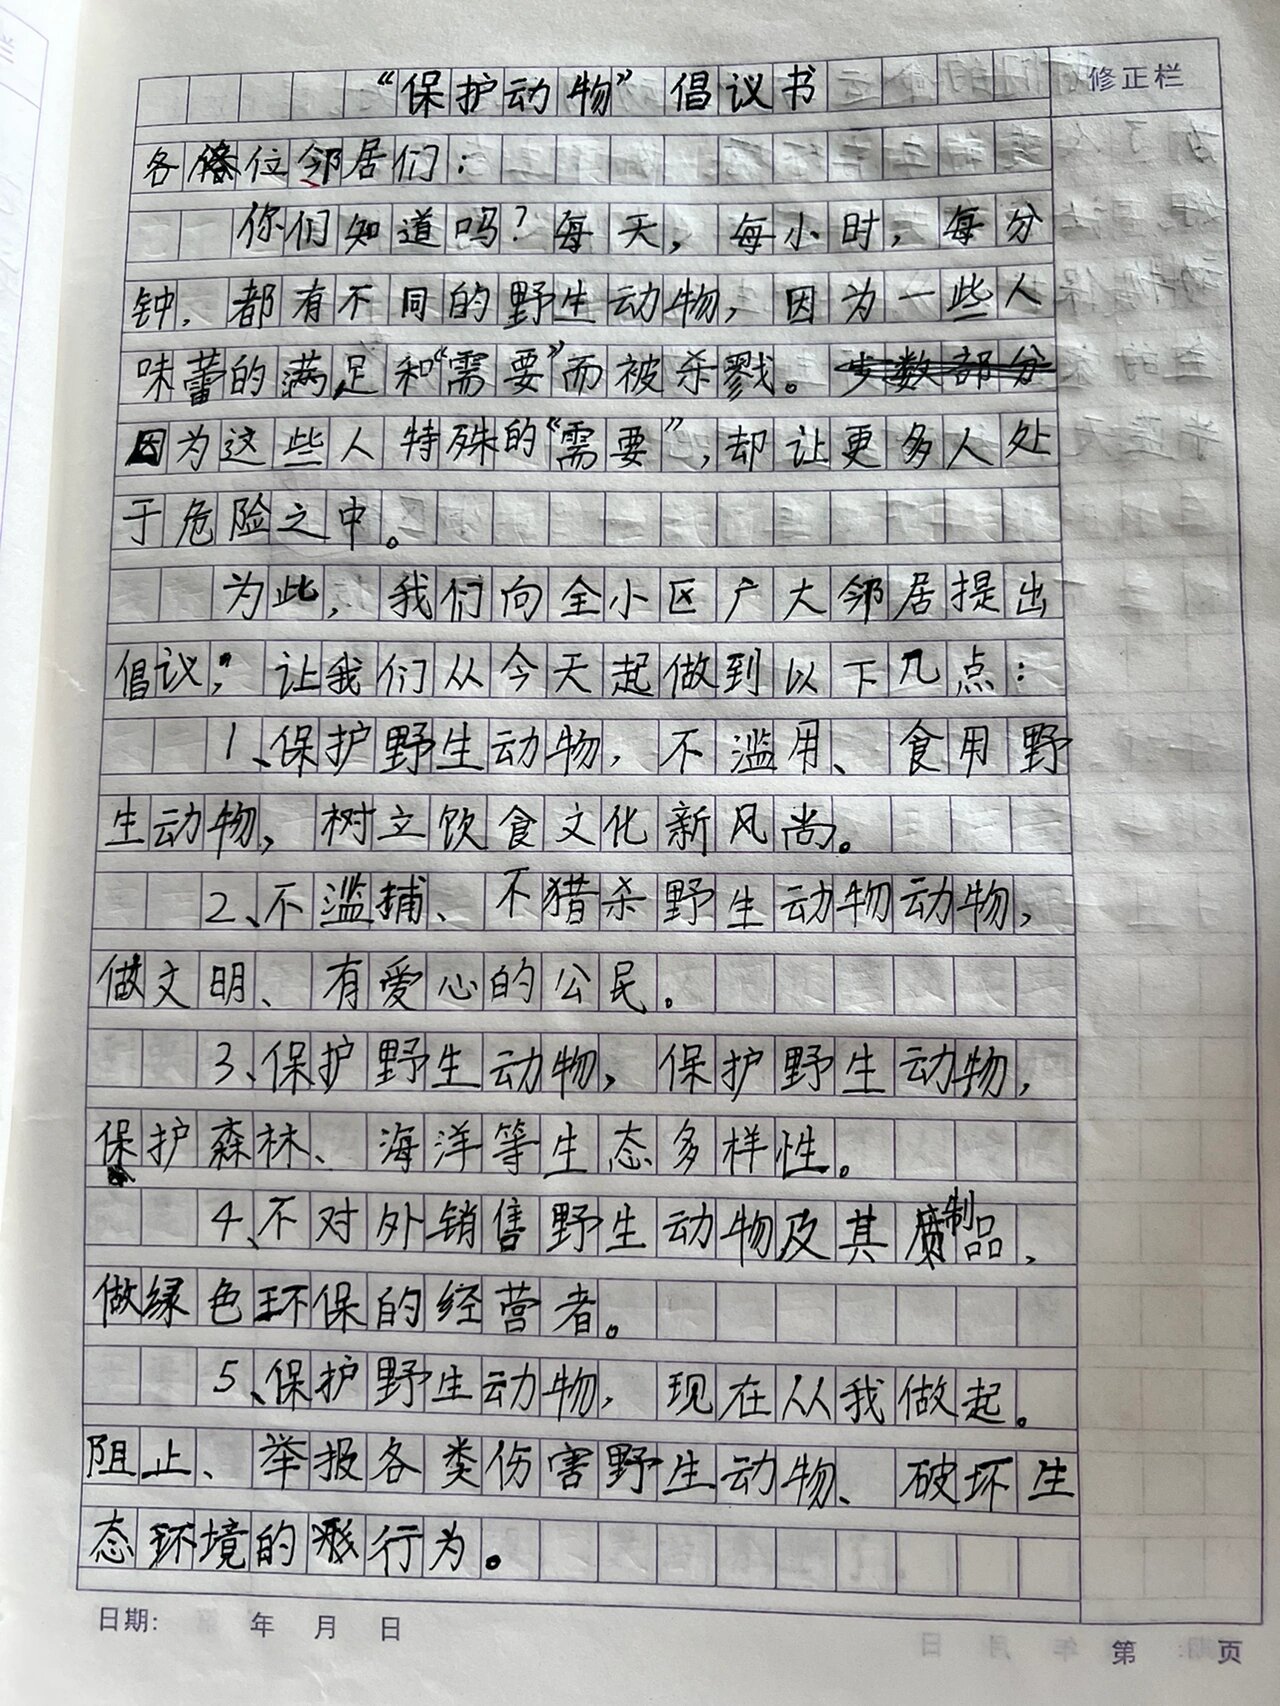 “保护动物”倡议书
修正栏
各位邻居们：
你们知道吗？每天，每小时，每分
钟，都有不同的野生动物，因为一些人
味蕾的满足和“需要”而被杀戮。
因为这些人特殊的“需要”，却让更多人处
于危险之中。
为此，我们向全小区广大邻居提出
倡议；让我们从今天起做到以下几点：
1、保护野生动物，不滥用、食用野
生动物，树立饮食文化新风尚。
2、不滥捕、不猎杀野生动物动物，
做文明、有爱心的公民。
3、保护野生动物，保护野生动物，
保护森林、海洋等生态多样性。
4、不对外销售野生动物及其制品，
做绿色环保的经营者。
5、保护野生动物，现在从我做起。
阻止、举报各类伤害野生动物、破坏生
态环境的行为。
日期： 年 月 日
第 页